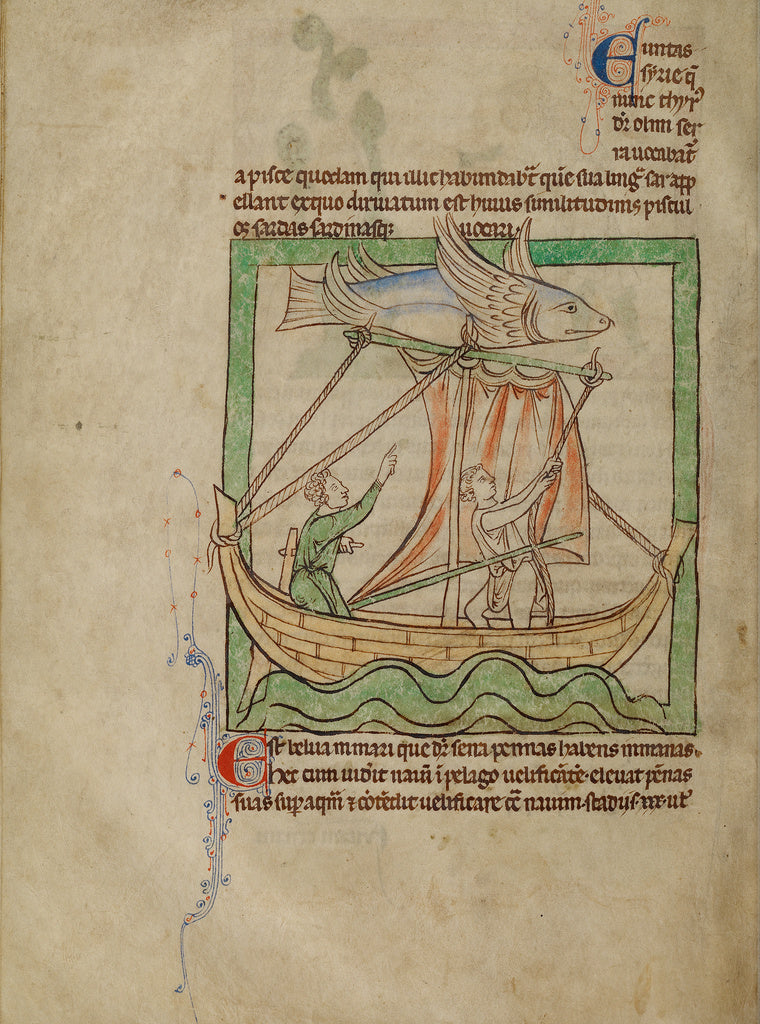 Euntas
syrie q̃
nunc thyrꝰ
dr̃ olim ser
ra uocabat̃
a pisce quodam qui illic habundab̃t que͂ sua ling̃ sar app
ellant ex quo diriuatum est huius similitudinis piscul
os sardas sardinasq; uocari.
Est belua in mari que dr̃ serra pennas habens inmanas.
hec cum uid̾it naue͂ ĩ pelago uelificãte͂. eleuat pẽnas
suas sup̱ aqua͂ ⁊ cõtendit uelificare cõ̱ nauem. stadijs. xxx. ul̃